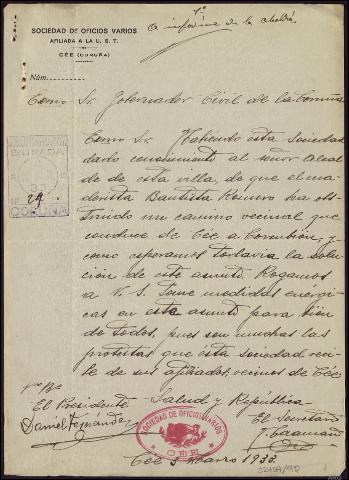 SOCIEDAD DE OFICIOS VARIOS
AFILIADA A LA U. G. T.
CÉE (CORUÑA)
A informe de la Alcaldía
Núm.
Excmo Sr. Gobernador Civil de la Coruña
ENTRADA
29
CORUÑA
Excmo Sr. Habiendo esta Sociedad
dado conocimiento al señor Alcal
de de esta villa, de que el ma
derista Bautista Romero ha obs
truido un camino vecinal que
conduce de Cée a Corcubión, y
como esperamos todavia la solu
ción de este asunto. Rogamos
a V. S. tome medidas enérgi
cas en este asunto para bien
de todos, pues son muchas las
protestas que esta sociedad reci
be de sus afiliados, vecinos de Cée
Salud y República
El Presidente
Daniel Fernández
El Secretario
J. Caamaño
SOCIEDAD DE OFICIOS VARIOS
CÉE
Cée 3 Marzo 1933.